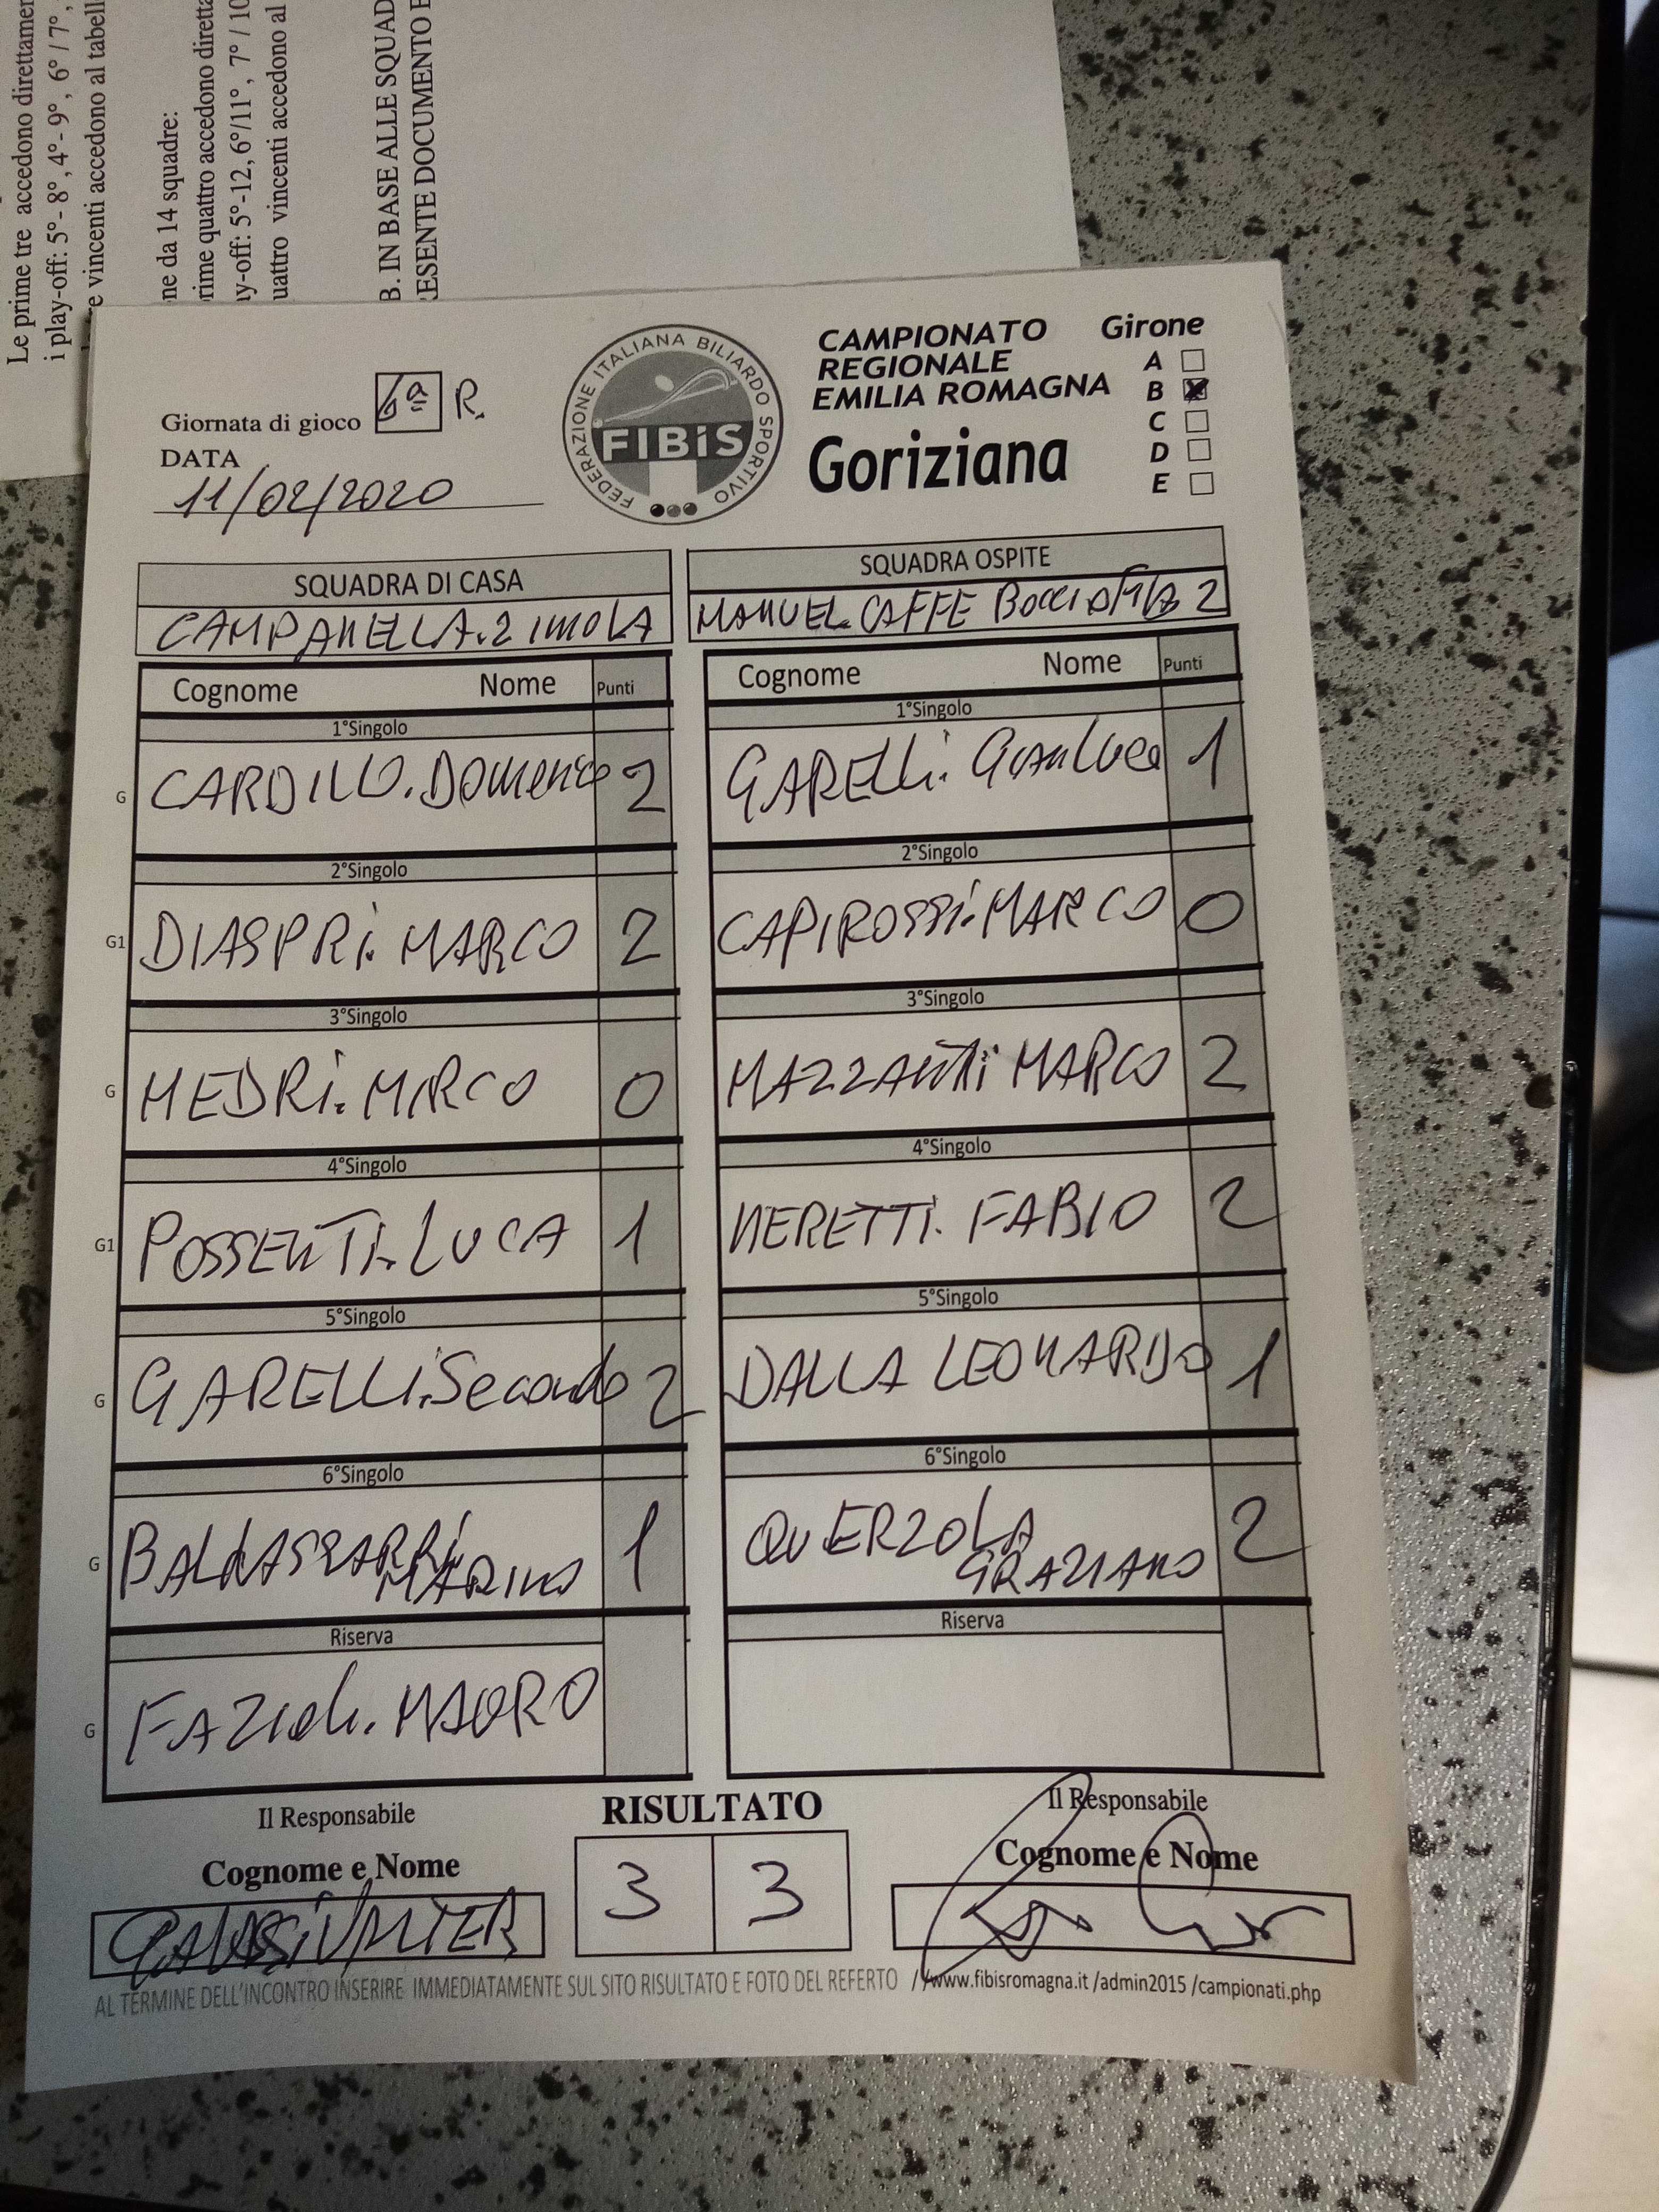 Le prime tre accedono direttamen
i play-off: 5°- 8°, 4°- 9°, 6° / 7°,
e vincenti accedono al tabell
ne da 14 squadre:
rime quattro accedono diretta
y-off: 5°-12, 6°/11°, 7° / 10
uattro vincenti accedono al
B. IN BASE ALLE SQUAD
ESENTE DOCUMENTO E
Giornata di gioco 6ª R.
DATA
11/02/2020
FEDERAZIONE ITALIANA BILIARDO SPORTIVO
FIBiS
CAMPIONATO
REGIONALE
EMILIA ROMAGNA
Goriziana
Girone
A
B
C
D
E
SQUADRA DI CASA
CAMPANELLA.2 IMOLA
SQUADRA OSPITE
MANUEL CAFFE BOCCIOFILA 2
Cognome Nome Punti
Cognome Nome Punti
1°Singolo
G CARDILLO. Domenico 2
1°Singolo
GARELLi. GianLuca 1
2°Singolo
G1 DIASPRi. MARCO 2
2°Singolo
CAPIROSSi. MARCO 0
3°Singolo
G MEDRi. MIRCO 0
3°Singolo
MAZZANTi MARCO 2
4°Singolo
G1 POSSENTi. LUCA 1
4°Singolo
NERETTI. FABIO 2
5°Singolo
G GARELLi. Secondo 2
5°Singolo
DALLA LEONARDO 1
6°Singolo
G BALDASSARRi
MARINO 1
6°Singolo
QUERZOLA
GRAZIANO 2
Riserva
G FAZioli. MAURO
Riserva
Il Responsabile
Cognome e Nome
RISULTATO
3 3
Il Responsabile
Cognome e Nome
AL TERMINE DELL'INCONTRO INSERIRE IMMEDIATAMENTE SUL SITO RISULTATO E FOTO DEL REFERTO //www.fibisromagna.it /admin2015 /campionati.php